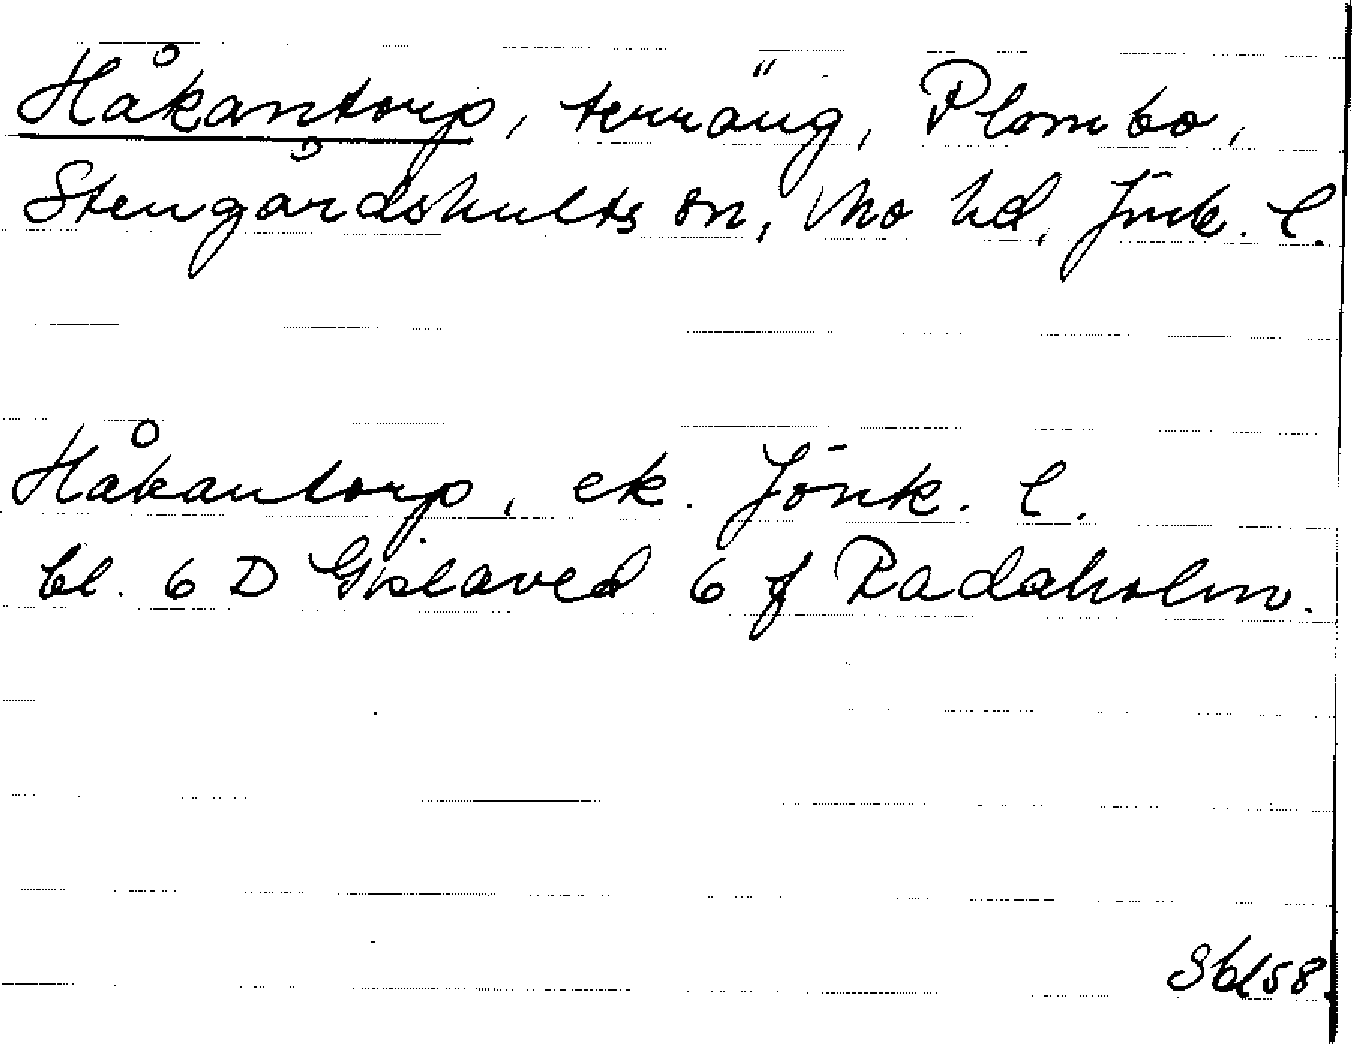 Håkantorp, terräng, Plombo,
Stengårdshults sn, Mo hd, Jönk. l.
Håkantorp, ek. Jönk. l.
bl. 6 D Gislaved 6 f Radaholm.
Sbl58.